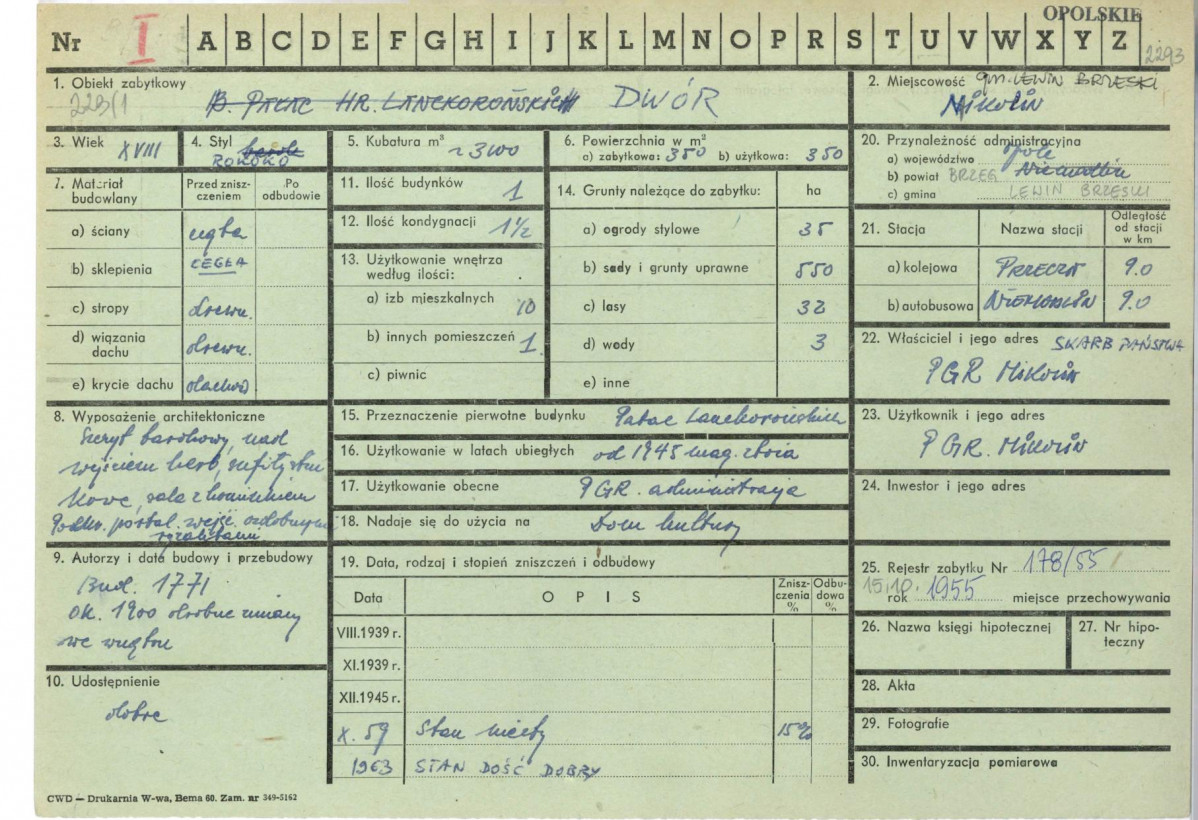 OPOLSKIE
Nr I A B C D E F G H I J K L M N O P R S T U V W X Y Z
2293
1. Obiekt zabytkowy
223/1
B. PAŁAC HR. LANCKOROŃSKICH DWÓR
2. Miejscowość gm. LEWIN BRZESKI
Mikolin
3. Wiek XVIII
4. Styl barok
ROKOKO
5. Kubatura m³ ~3100
6. Powierzchnia w m²
a) zabytkowa: 350 b) użytkowa: 350
20. Przynależność administracyjna
a) województwo Opole
b) powiat BRZEG Niemodlin
c) gmina LEWIN BRZESKI
7. Materiał budowlany
Przed zniszczeniem
Po odbudowie
a) ściany cegła
b) sklepienia CEGŁA
c) stropy drewn.
d) wiązania dachu drewn.
e) krycie dachu dachów.
11. Ilość budynków 1
12. Ilość kondygnacji 1½
13. Użytkowanie wnętrza według ilości:
a) izb mieszkalnych 10
b) innych pomieszczeń 1
c) piwnic
14. Grunty należące do zabytku: ha
a) ogrody stylowe 35
b) sady i grunty uprawne 550
c) lasy 32
d) wody 3
e) inne
21. Stacja Nazwa stacji Odległość od stacji w km
a) kolejowa PRZECZA 9.0
b) autobusowa NIEMODLIN 9.0
22. Właściciel i jego adres SKARB PAŃSTWA
PGR Mikolin
8. Wyposażenie architektoniczne
Szczyt barokowy, nad
wejściem herb, sufity stiu
kowe, sala z kominkiem
portal. wejśc. ozdobnym
ryzalitami
15. Przeznaczenie pierwotne budynku Pałac Lanckorońskich
16. Użytkowanie w latach ubiegłych od 1945 mag. zboża
17. Użytkowanie obecne PGR. administracja
18. Nadaje się do użycia na Dom kultury
23. Użytkownik i jego adres
PGR. Mikolin
24. Inwestor i jego adres
9. Autorzy i data budowy i przebudowy
Bud. 1771
ok. 1900 drobne zmiany
we wnętrzu
10. Udostępnienie
dobre
19. Data, rodzaj i stopień zniszczeń i odbudowy
Data OPIS Zniszczenia % Odbudowa %
VIII.1939 r.
XI.1939 r.
XII.1945 r.
X. 59 Stan niezły 15%
1963 STAN DOŚĆ DOBRY
25. Rejestr zabytku Nr 178/55
15.10. rok 1955 miejsce przechowywania
26. Nazwa księgi hipotecznej
27. Nr hipoteczny
28. Akta
29. Fotografie
30. Inwentaryzacja pomiarowa
CWD — Drukarnia W-wa, Bema 60. Zam. nr 349-5162